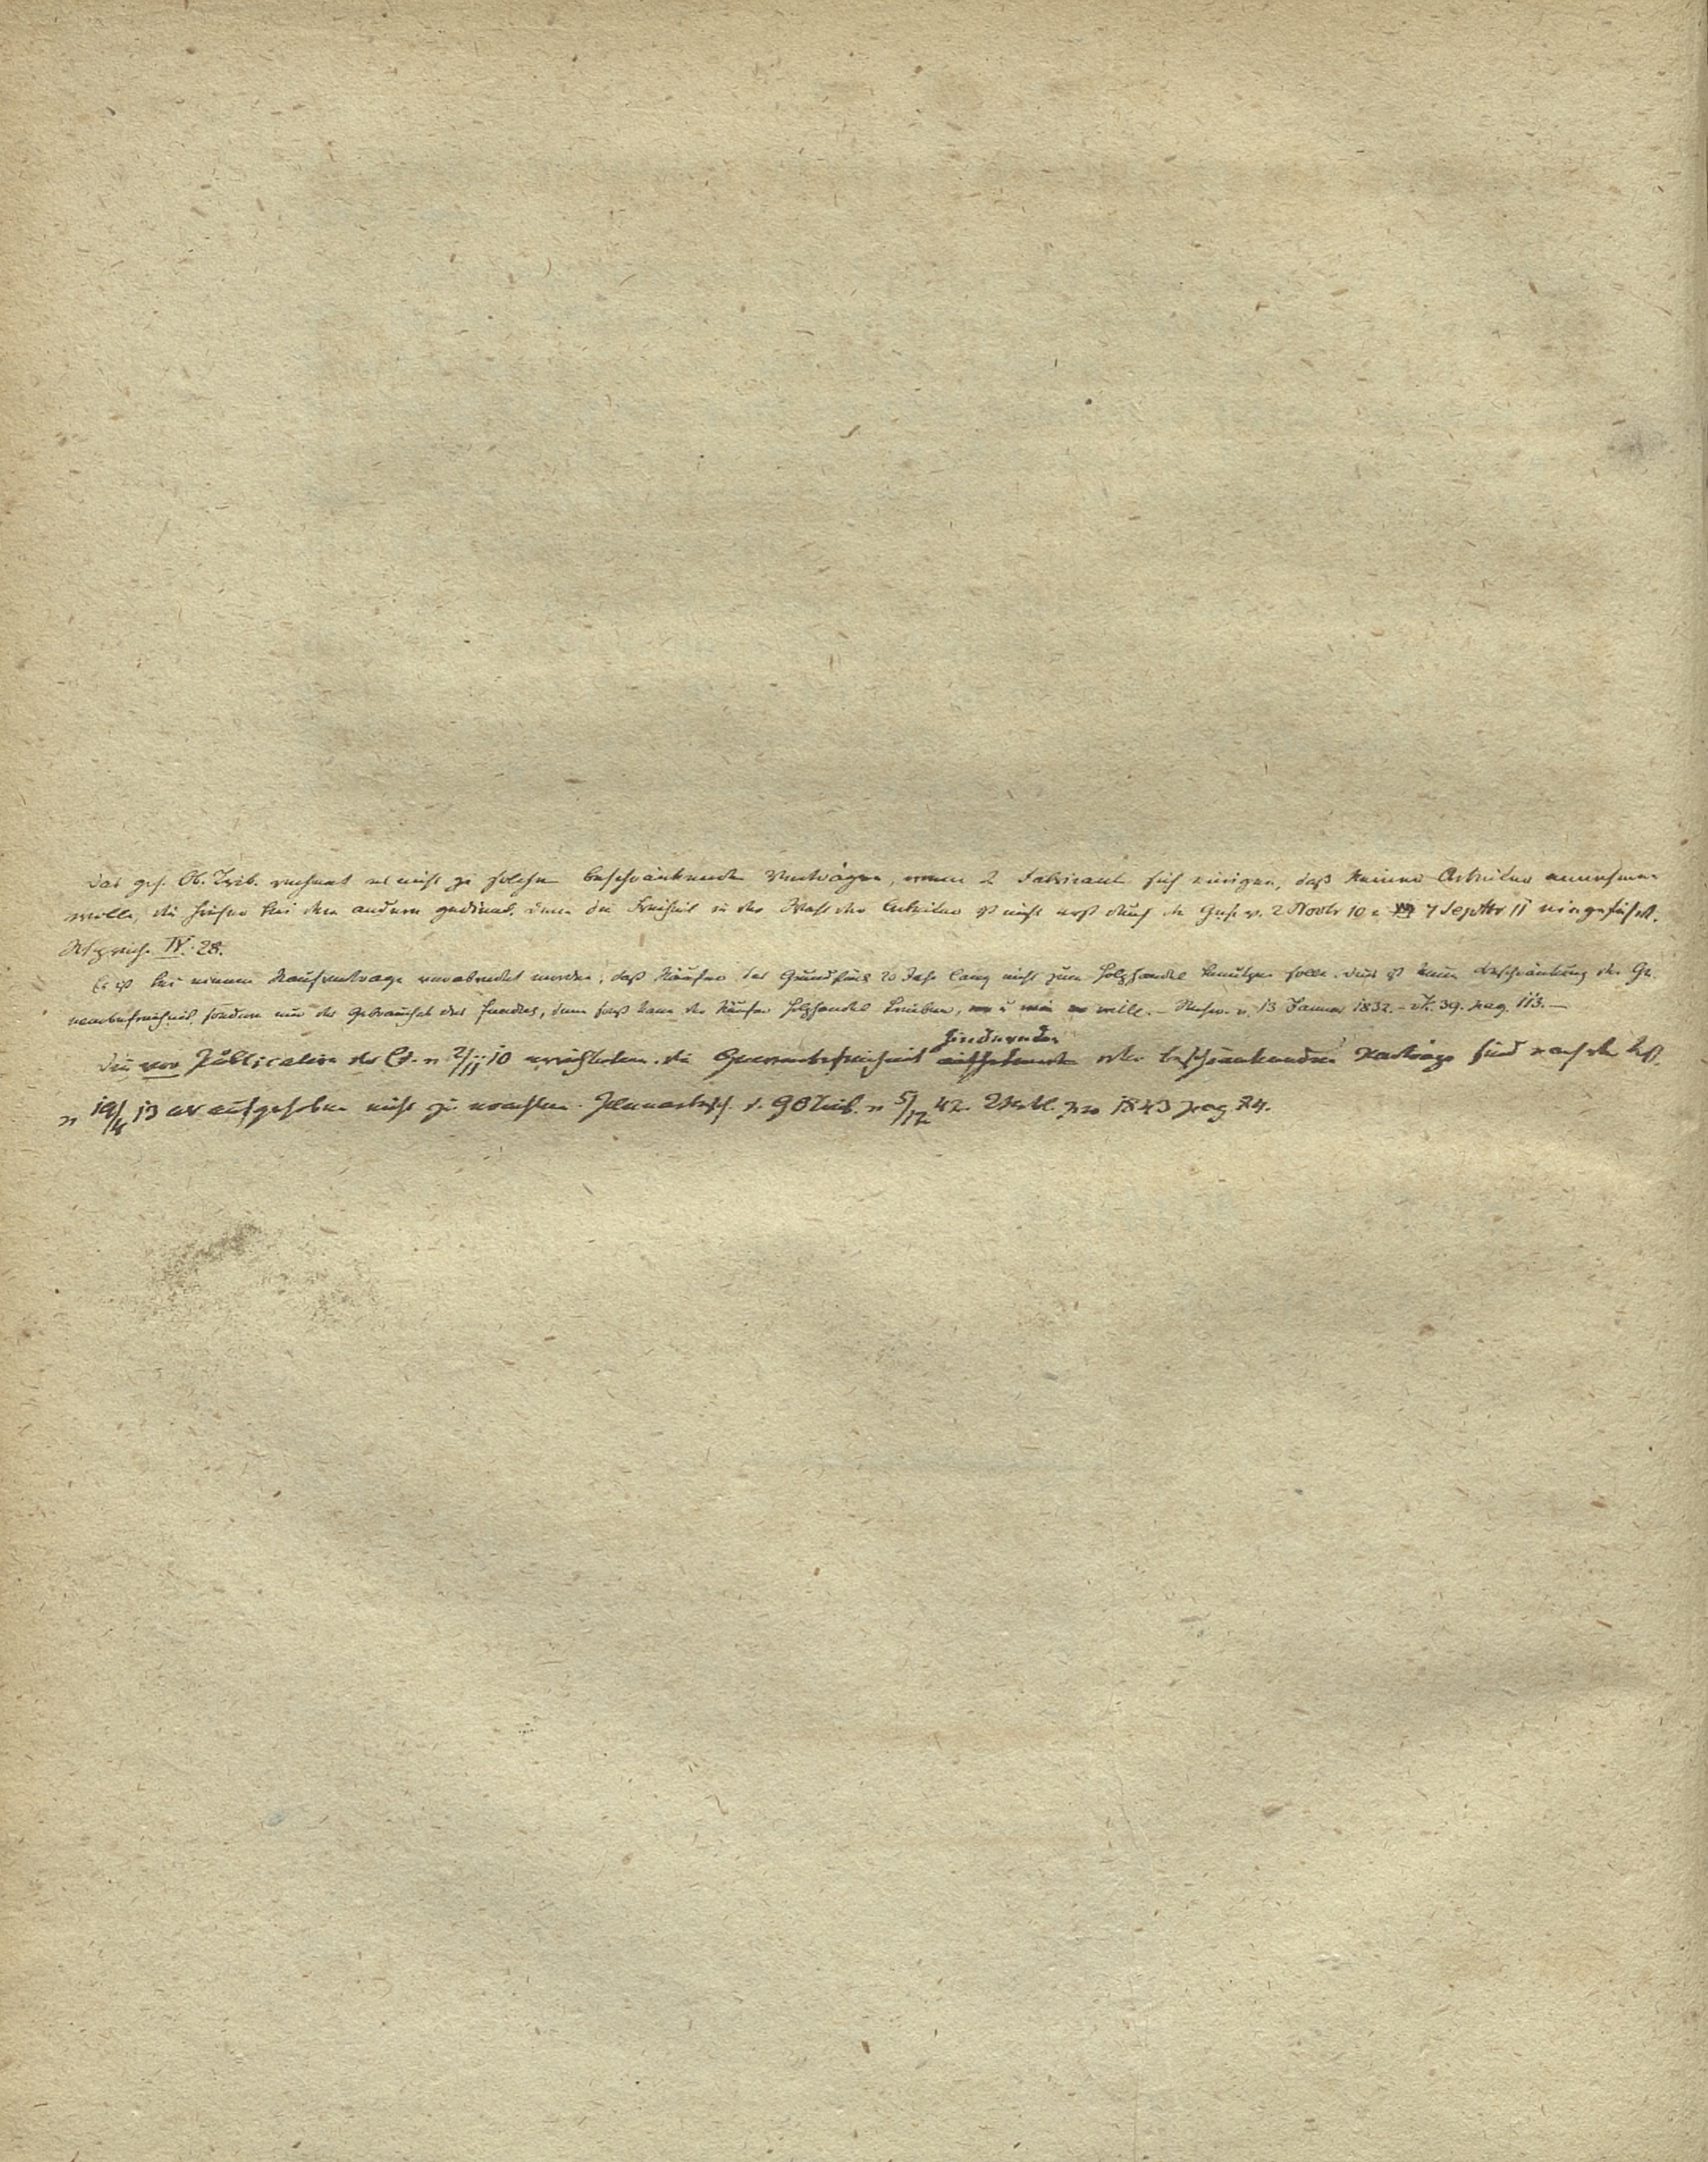 Das geh. Ob. Trib. rechnet es nicht zu solchen beschränkenden Verträgen, wenn 2 Fabricant. sich einigen, daß keiner Arbeiter annehmen
wolle, die früher bei dem andern gedient. denn die Freiheit in der Wahl der Arbeiter ist nicht erst durch die Gese. v. 2 Novbr 10 u. 7 Septbr 11 eingeführt.
IV. 28.
Es ist bei einem Kaufvertrage verabredet worden, daß Käufer das Grundstück 20 Jahr lang nicht zum Holzhandel benutzen solle. dies ist keine Beschränkung der Ge-
werbefreiheit, sondern nur des Gebrauchs des fundus, denn sonst kann der Käufer Holzhandel treiben, wo u wie er wolle. – v. 13 Januar 1832. – 39. pag. 113. –
hindernden
Die vor Publication des Ed. v 2/11 10 errichteten, die Gewerbefreiheit oder beschränkenden Verträge sind nach der
v 19/4 13 als aufgehoben nicht zu erachten. Plenarbeschl. d. G O Trib. v 5/12 42. pro 1843 pag. 74.